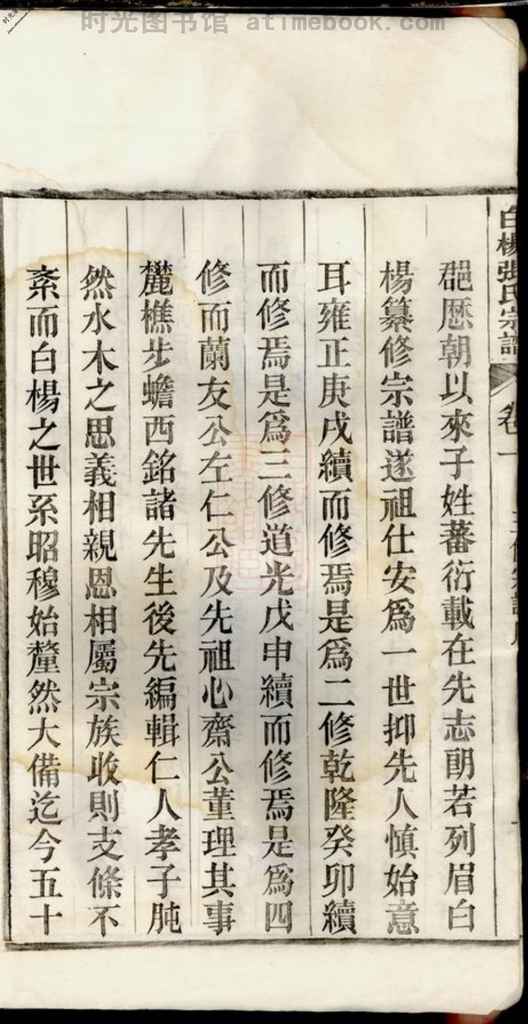 时光图书馆 atimebook.com
时光图书馆
白楊張氏宗譜 卷一
郶歷朝以來子姓蕃衍載在先志朗若列眉白
楊纂修宗譜遂祖仕安爲一世抑先人慎始意
耳雍正庚戌續而修焉是爲二修乾隆癸卯續
而修焉是爲三修道光戊申續而修焉是爲四
修而蘭友公左仁公及先祖心齋公董理其事
麓樵步蟾西銘諸先生後先編輯仁人孝子肫
然水木之思義相親恩相屬宗族收則支條不
紊而白楊之世系昭穆始釐然大備迄今五十